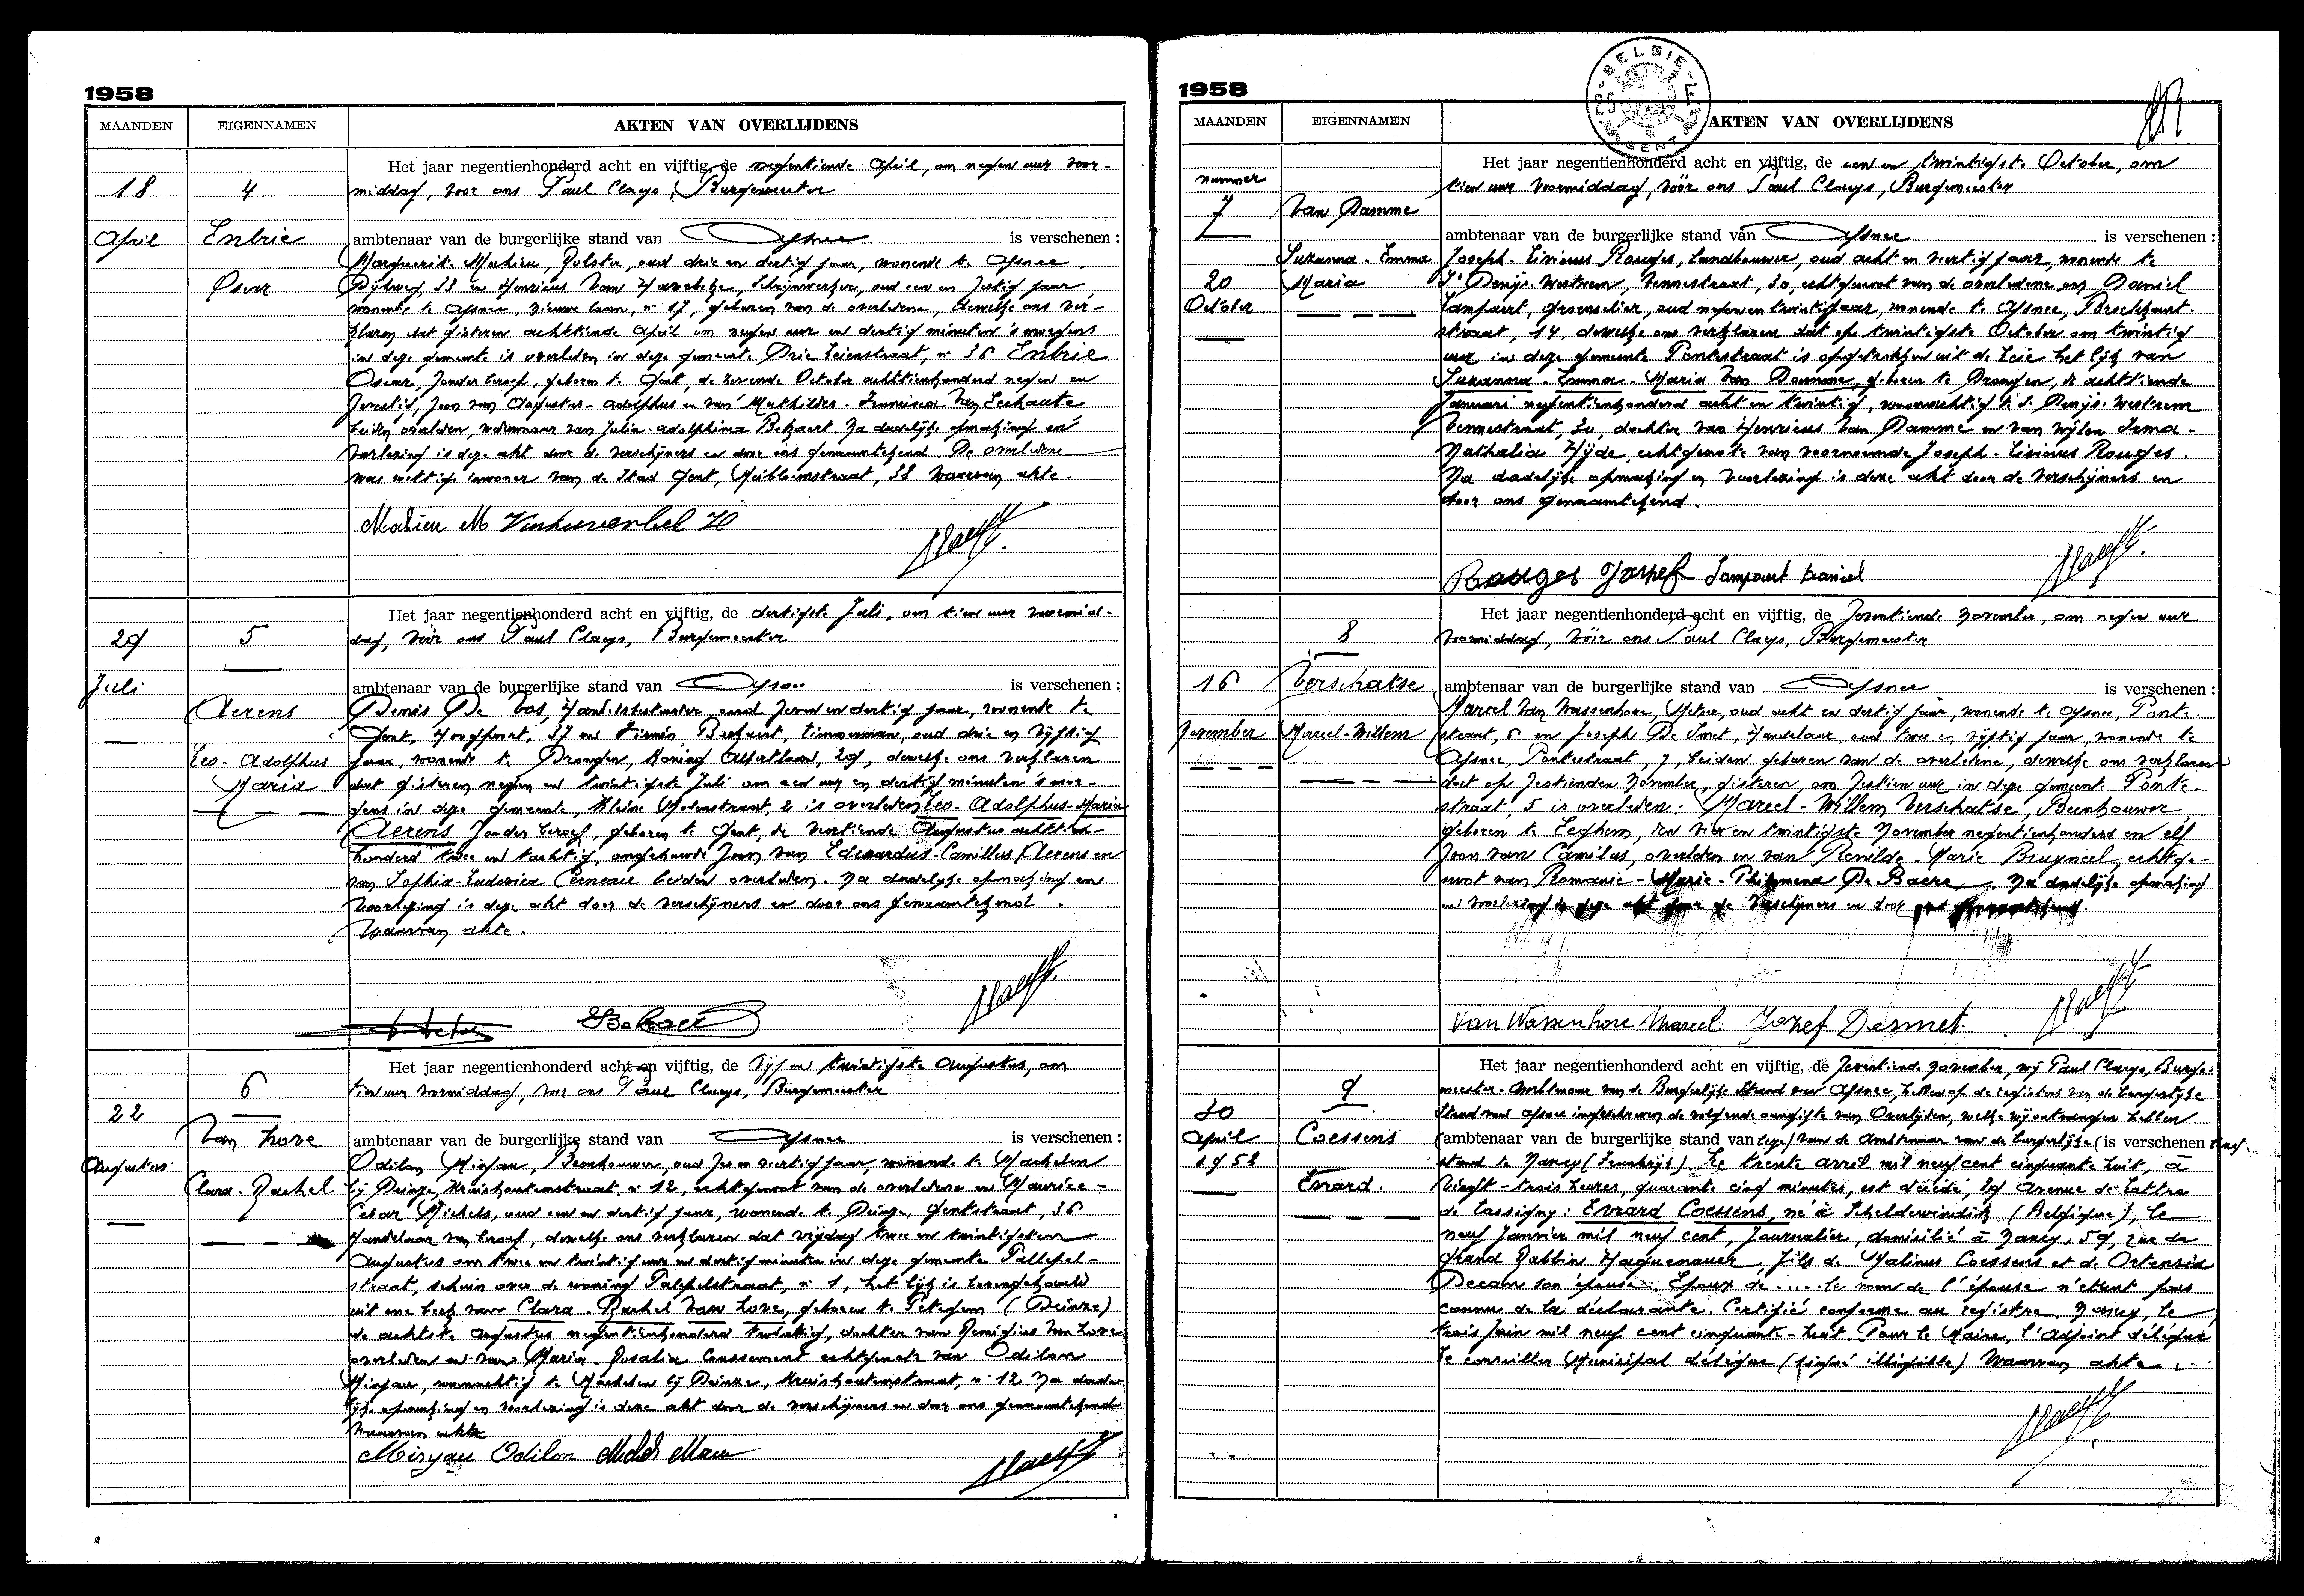 1958
MAANDEN EIGENNAMEN AKTEN VAN OVERLIJDENS
18 April
4 Enbrie Oscar
Het jaar negentienhonderd acht en vijftig, de negentiende April, om negen uur voor-
middag, voor ons Paul Claeys, Burgemeester
ambtenaar van de burgerlijke stand van Afsnee is verschenen :
Marguerite Mahieu, Polster, oud drie en dertig jaar, wonende te Afsnee
Rijkweg, 33 en Henricus Van, Schrijnwerker, oud een en zestig jaar
wonende te Afsnee, nieuwe laan, n 17, geburen van de overledene, dewelke ons ver-
klaren dat gisteren achttiende April om negen uur en dertig minuten 's morgens
in deze gemeente is overleden in deze gemeente Drie Leienstraat, n 36 Enbrie
Oscar, zonder beroep, geboren te Gent, de zevende October achttienhonderd negen en
zestig, zoon van Augustus-Adolphus en van Mathildis-Francisca Van
beiden overleden, weduwnaar van Julia-Adolphina. Na dadelijke opmaking en
voorlezing is deze akt door de verschijners en door ons genaamtekend. De overledene
was wettige inwoner van de Stad Gent, 38 waarvan akte.
Mahieu M
29 Juli
5 Aerens Leo-Adolphus Maria
Het jaar negentienhonderd acht en vijftig, de dertigste Juli, om tien uur voormid-
dag, vóór ons Paul Claeys, Burgemeester
ambtenaar van de burgerlijke stand van Afsnee is verschenen :
Denis De Vos, oud zeven en dertig jaar, wonende te
Gent, Hoogpoort, 37 en Firmin Bekaert, timmerman, oud drie en vijftig
jaar, wonende te Drongen, Koning Albertlaan, 29, dewelke ons verklaren
dat gisteren negen en twintigste Juli om een uur en dertig minuten 's mor-
gens in deze gemeente, Kleine Molenstraat, 2 is overleden Leo-Adolphus-Maria
Aerens zonder beroep, geboren te Gent, de veertiende Augustus achttien-
honderd twee en tachtig, ongehuwde zoon van Edouardus-Camillus Aerens en
van Sophia-Ludovica Cerneau beiden overleden. Na dadelijke opmaking en
voorlezing is deze akt door de verschijners en door ons genaamtekend.
Waarvan akte.
Bekaert
22 Augustus
6 Van Hove Clara-Rachel
Het jaar negentienhonderd acht en vijftig, de vijf en twintigste Augustus, om
tien uur voormiddag, voor ons Paul Claeys, Burgemeester
ambtenaar van de burgerlijke stand van Afsnee is verschenen :
Odilon, Beenhouwer, oud zes en veertig jaar, wonende te Machelen
bij Deinze, Kruishoutemstraat, n 12, echtgenoot van de overledene en Maurice-
Cesar Michels, oud een en dertig jaar, wonende te Deinze, Gentstraat, 36
Handelaar van beroep, dewelke ons verklaren dat vrijdag twee en twintigsten
Augustus om twee en twintig uur en dertig minuten in deze gemeente
straat, schuin over de woning, n 1, het lijk is bovengehaald
uit een beek van Clara-Rachel Van Hove, geboren te Petegem (Deinze)
de achtste Augustus negentienhonderd twintig, dochter van Remigius Van Hove
overleden en van Maria-Rosalia Coussement echtgenote van Odilon
woonachtig te Machelen bij Deinze, Kruishoutemstraat, n 12. Na dade-
lijke opmaking en voorlezing is deze akt door de verschijners en door ons genaamtekend
Waarvan akte
Odilon
1958
BELGIE GENT
MAANDEN EIGENNAMEN AKTEN VAN OVERLIJDENS
nummer 7
20 October
Van Damme Suzanna-Emma Maria
Het jaar negentienhonderd acht en vijftig, de een en twintigste October, om
tien uur voormiddag, vóór ons Paul Claeys, Burgemeester
ambtenaar van de burgerlijke stand van Afsnee is verschenen :
Joseph-Livinus Rouges, Landbouwer, oud acht en veertig jaar, wonende te
St Denijs-Westrem, Vennestraat, 30, echtgenoot van de overledene en Daniel
Lampaert, oud negen en twintig jaar, wonende te Afsnee,
straat, 14, dewelke ons verklaren dat op twintigste October om twintig
uur in deze gemeente Pontestraat is opgetrokken uit de Leie het lijk van
Suzanna-Emma-Maria Van Damme, geboren te Drongen, de achttiende
Januari negentienhonderd acht en twintig, woonachtig te St Denijs-Westrem
Vennestraat, 30, dochter van Henricus Van Damme en van wijlen Irma-
Nathalia, echtgenote van voornoemde Joseph-Livinus Rouges.
Na dadelijke opmaking en voorlezing is deze akt door de verschijners en
door ons genaamtekend.
Rouges Joseph Lampaert Daniel
16 November
8 Verschatse Marcel-Willem
Het jaar negentienhonderd acht en vijftig, de zeventiende November, om negen uur
voormiddag, vóór ons Paul Claeys, Burgemeester
ambtenaar van de burgerlijke stand van Afsnee is verschenen :
Marcel Van Wassenhove, oud acht en dertig jaar, wonende te Afsnee, Ponte-
straat, 6 en Joseph De Smet, Handelaar, oud twee en vijftig jaar, wonende te
Afsnee, Pontestraat, 7, beiden geburen van de overledene, dewelke ons verklaren
dat op zestienden November, gisteren, om zestien uur in deze gemeente Ponte-
straat, 5 is overleden: Marcel-Willem Verschatse, Beenhouwer,
geboren te, den vier en twintigste November negentienhonderd en elf
zoon van Camilus, overleden en van Renilde-Marie Bruyneel, echtge-
noot van Romanie-Marie-Philomena De Baere. Na dadelijke opmaking
en voorlezing is deze akt door de verschijners en door ons genaamtekend.
Van Wassenhove Marcel Jozef Desmet.
30 April 1958
9 Coessens Evrard.
Het jaar negentienhonderd acht en vijftig, de zeventiende November, wij Paul Claeys, Burge-
meester-Ambtenaar van de Burgerlijke Stand van Afsnee, hebben op de registers van de burgerlijke
Stand van Afsnee ingeschreven de volgende aangifte van Overlijden, welke wij ontvangen hebben
ambtenaar van de burgerlijke stand van van de Ambtenaar van de burgerlijke is verschenen
stand te Nancy (Frankrijk) Le trente avril mil neuf cent cinquante huit, à
vingt-trois heures, quarante cinq minutes, est décédé, 29 avenue de Lattre
de Tassigny: Evrard Coessens, né à Schelderwindik (Belgique), le
neuf Janvier mil neuf cent, Journalier, domicilié à Nancy, 59, rue du
Grand Rabbin Haguenauer, fils de Malinus Coessens et de Ortensia
Decan son épouse. Epoux de .... le nom de l'épouse n'étant pas
connu de la déclarante. Certifié conforme au registre. Nancy, le
trois Juin mil neuf cent cinquante-huit. Pour le Maire, l'adjoint délégué
Le conseiller Municipal délégué (signé illisible) Waarvan akte.